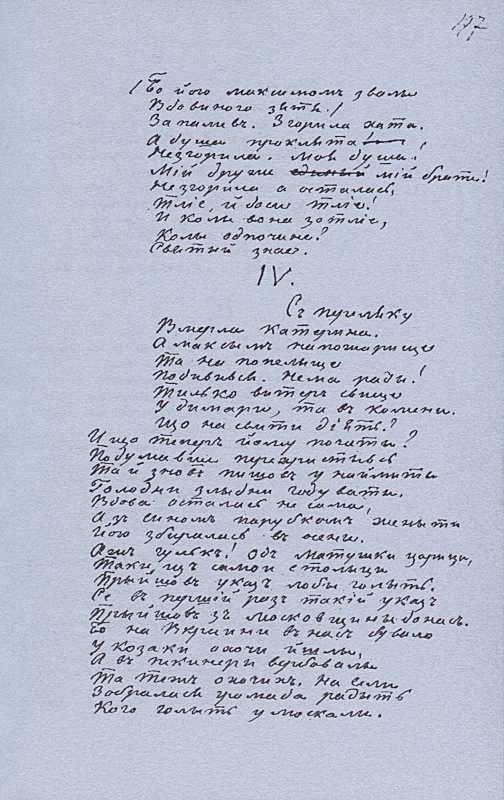 197
/ Бо його максимомъ звалы
Вдовиного зятя. /
Запаливъ. Згорила хата.
А душа проклята !
Незгорила. Моя душа!
Мій друже единый мій брате!
Незгорила а осталась,
Тліє, й досі тліє!
И коли вона зотліє,
Колы одпочине?
Святый знає.
IV.
Съ переляку
Вмерла катерина.
А максымъ на пожарище
Та на попелыще
Подивывся. Нема рады!
Тилько витеръ свище
У димари, та въ комени.
Що на свити діять?
И що теперъ йому почати?
Подумавши перехристывсь
Та й зновъ пишовъ у наймыты
Голодни злыдни годувати.
Вдова осталась не сама,
А зъ сыномъ парубкомъ женыти
Його збиралась въ осени.
Ажъ гулькъ! Одъ матушки царици,
Таки изъ самои столыци
Прыйшовъ указъ лобы голыть.
Се въ першій разъ такій указъ
Прыйшовъ зъ московщины до насъ.
Бо на Вкраини въ насъ бувало
У козаки охочи йшлы,
А въ пикинеры вербовалы
Та тежъ охочихъ. На сели
Зобралася громада радыть
Кого голыть у москали.